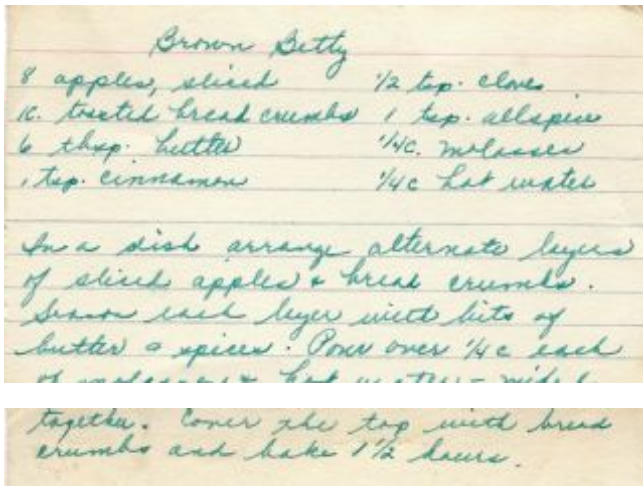 Brown Betty
8 apples, sliced 1/2 tsp. cloves
1c. toasted bread crumbs 1 tsp. allspice
6 tbsp. butter 1/4c. molasses
1 tsp. cinnamon 1/4c hot water
In a dish arrange alternate layers
of sliced apples & bread crumbs.
Season each layer with bits of
butter & spices. Pour over 1/4c each
of molasses & hot water - mixed
together. Cover the top with bread
crumbs and bake 1 1/2 hours.